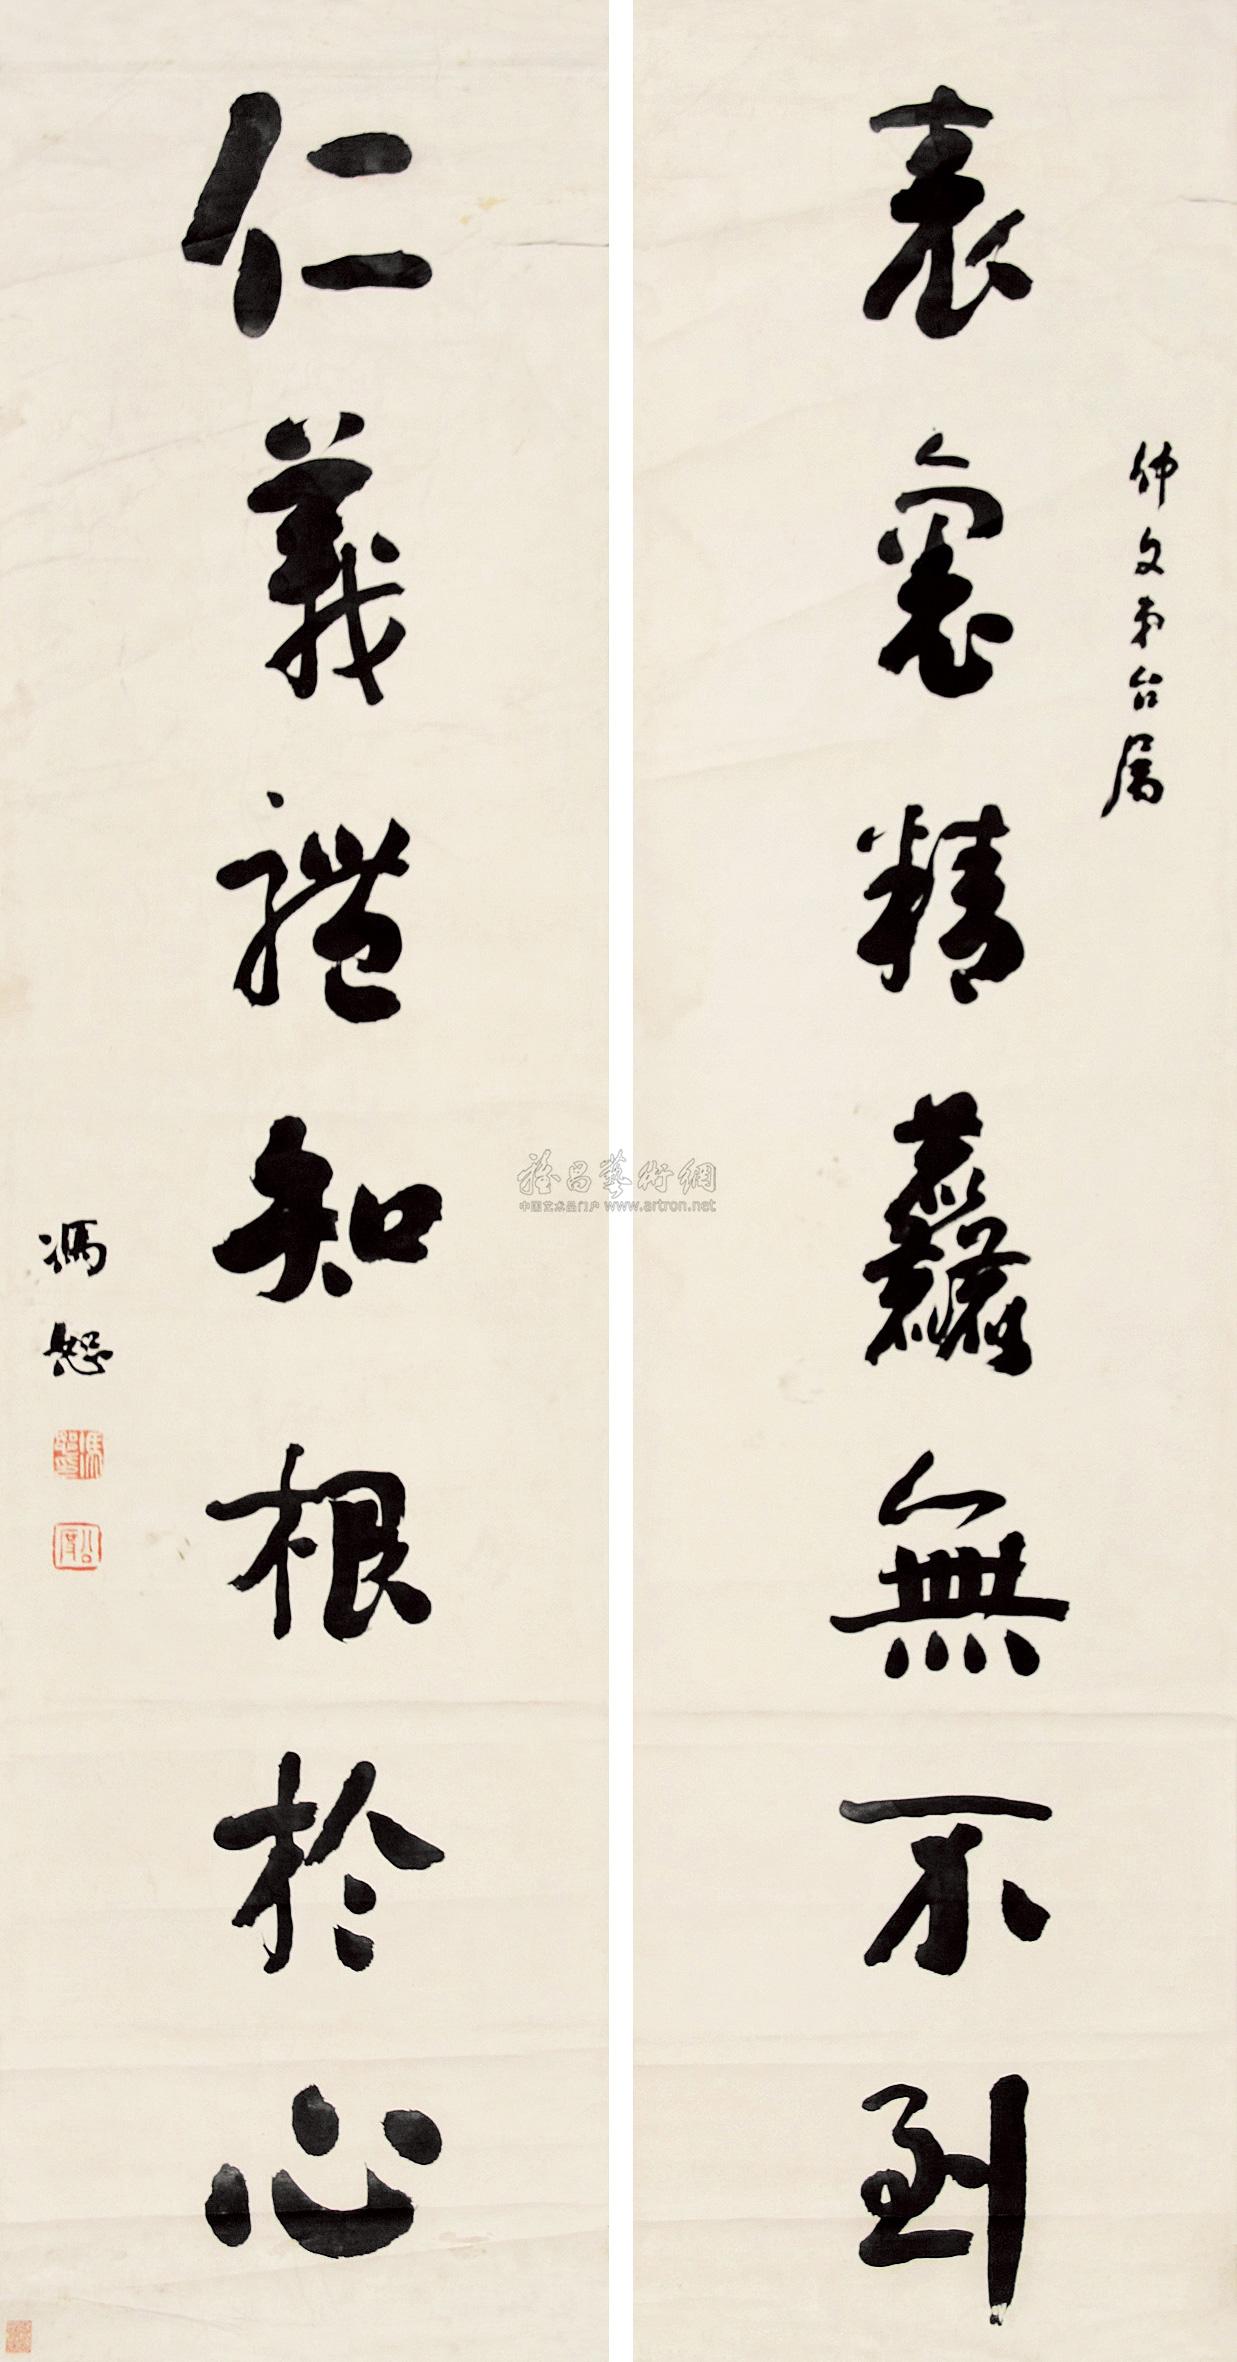 仲文弟台属
表裏精麤無不到
仁義禮知根於心
馮恕
馮恕之印
公度
雅昌藝術網
中国艺术品门户 www.artron.net